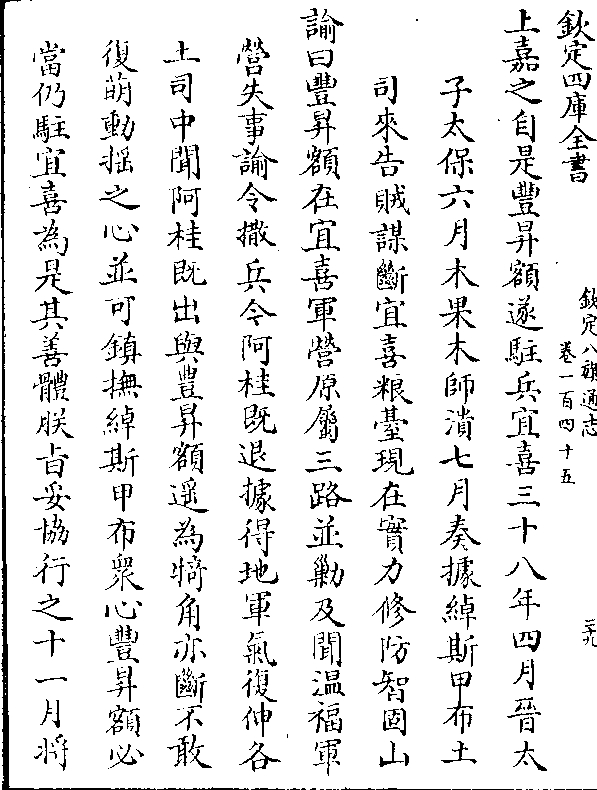 欽定四庫全書
欽定八旗通志
卷一百四十五
三九
上嘉之自是豐昇額遂駐兵宜喜三十八年四月晉太
子太保六月木果木師潰七月奏據綽斯甲布土
司來告賊謀斷宜喜粮臺現在實力修防智固山
諭曰豐昇額在宜喜軍營原屬三路並勦及聞温福軍
營失事諭令撒兵今阿桂既退據得地軍氣復伸各
土司中聞阿桂既出與豐昇額遥為犄角亦斷不敢
復萌動揺之心並可鎮撫綽斯甲布衆心豐昇額必
當仍駐宜喜為是其善體朕㫖妥協行之十一月将